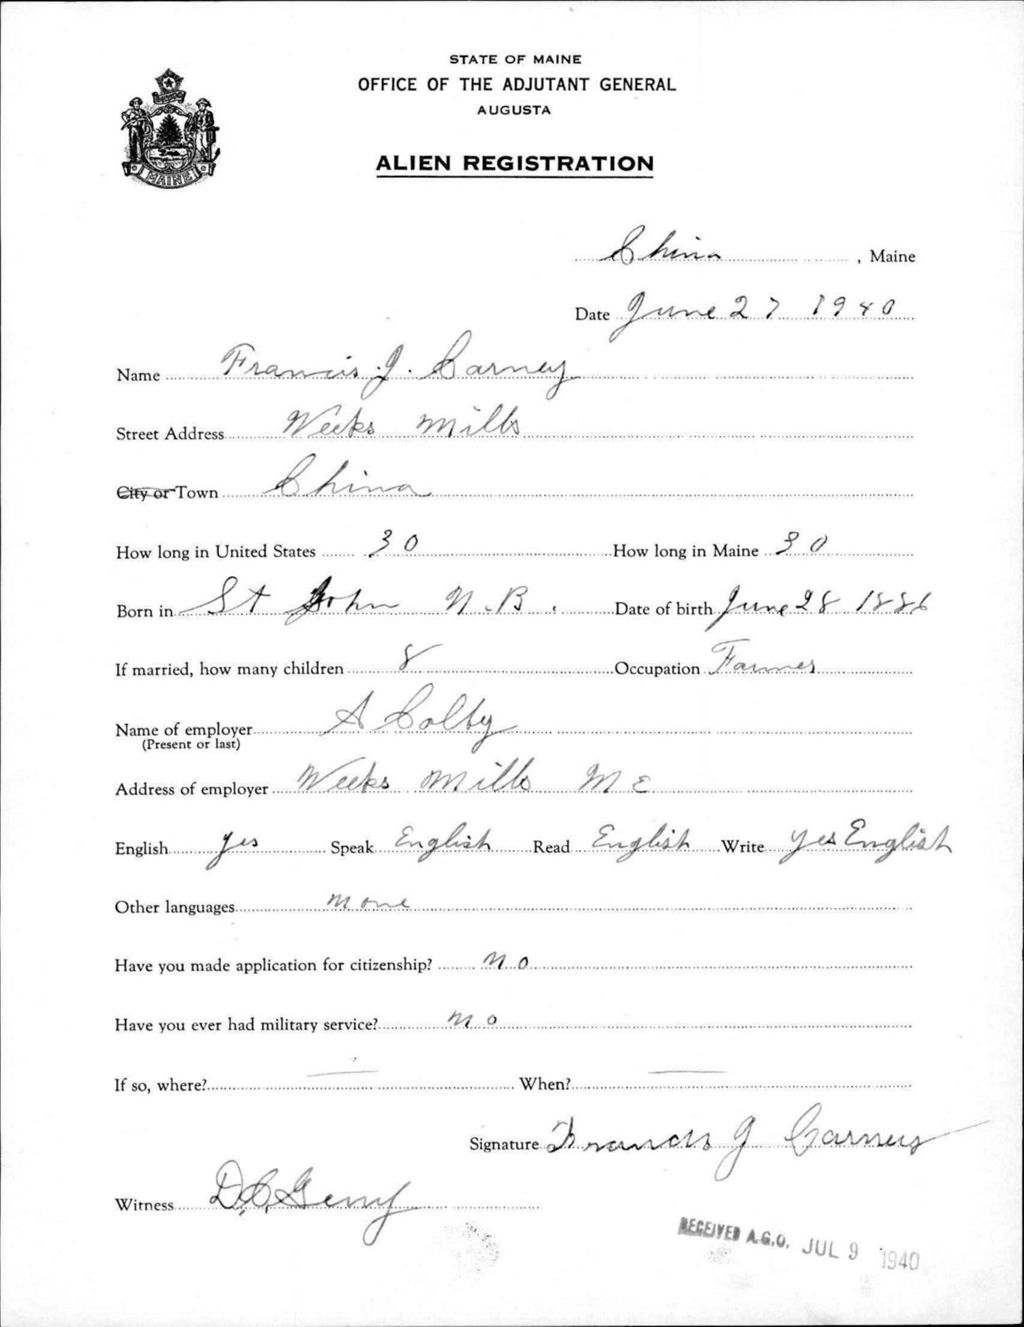 STATE OF MAINE
OFFICE OF THE ADJUTANT GENERAL
AUGUSTA
ALIEN REGISTRATION
MAINE
China, Maine
Date June 27 1940
Name Francis J. Carney
Street Address Weeks Mills
City or Town China
How long in United States 30 How long in Maine 30
Born in St John N.B. Date of birth June 28 1886
If married, how many children 8 Occupation Farmer
Name of employer A Colby
(Present or last)
Address of employer Weeks Mills ME
English yes Speak English Read English Write yes English
Other languages None
Have you made application for citizenship? No
Have you ever had military service? No
If so, where? — When? —
Signature Francis J Carney
Witness D.C. Genny
RECEIVED A.G.O. JUL 9 1940